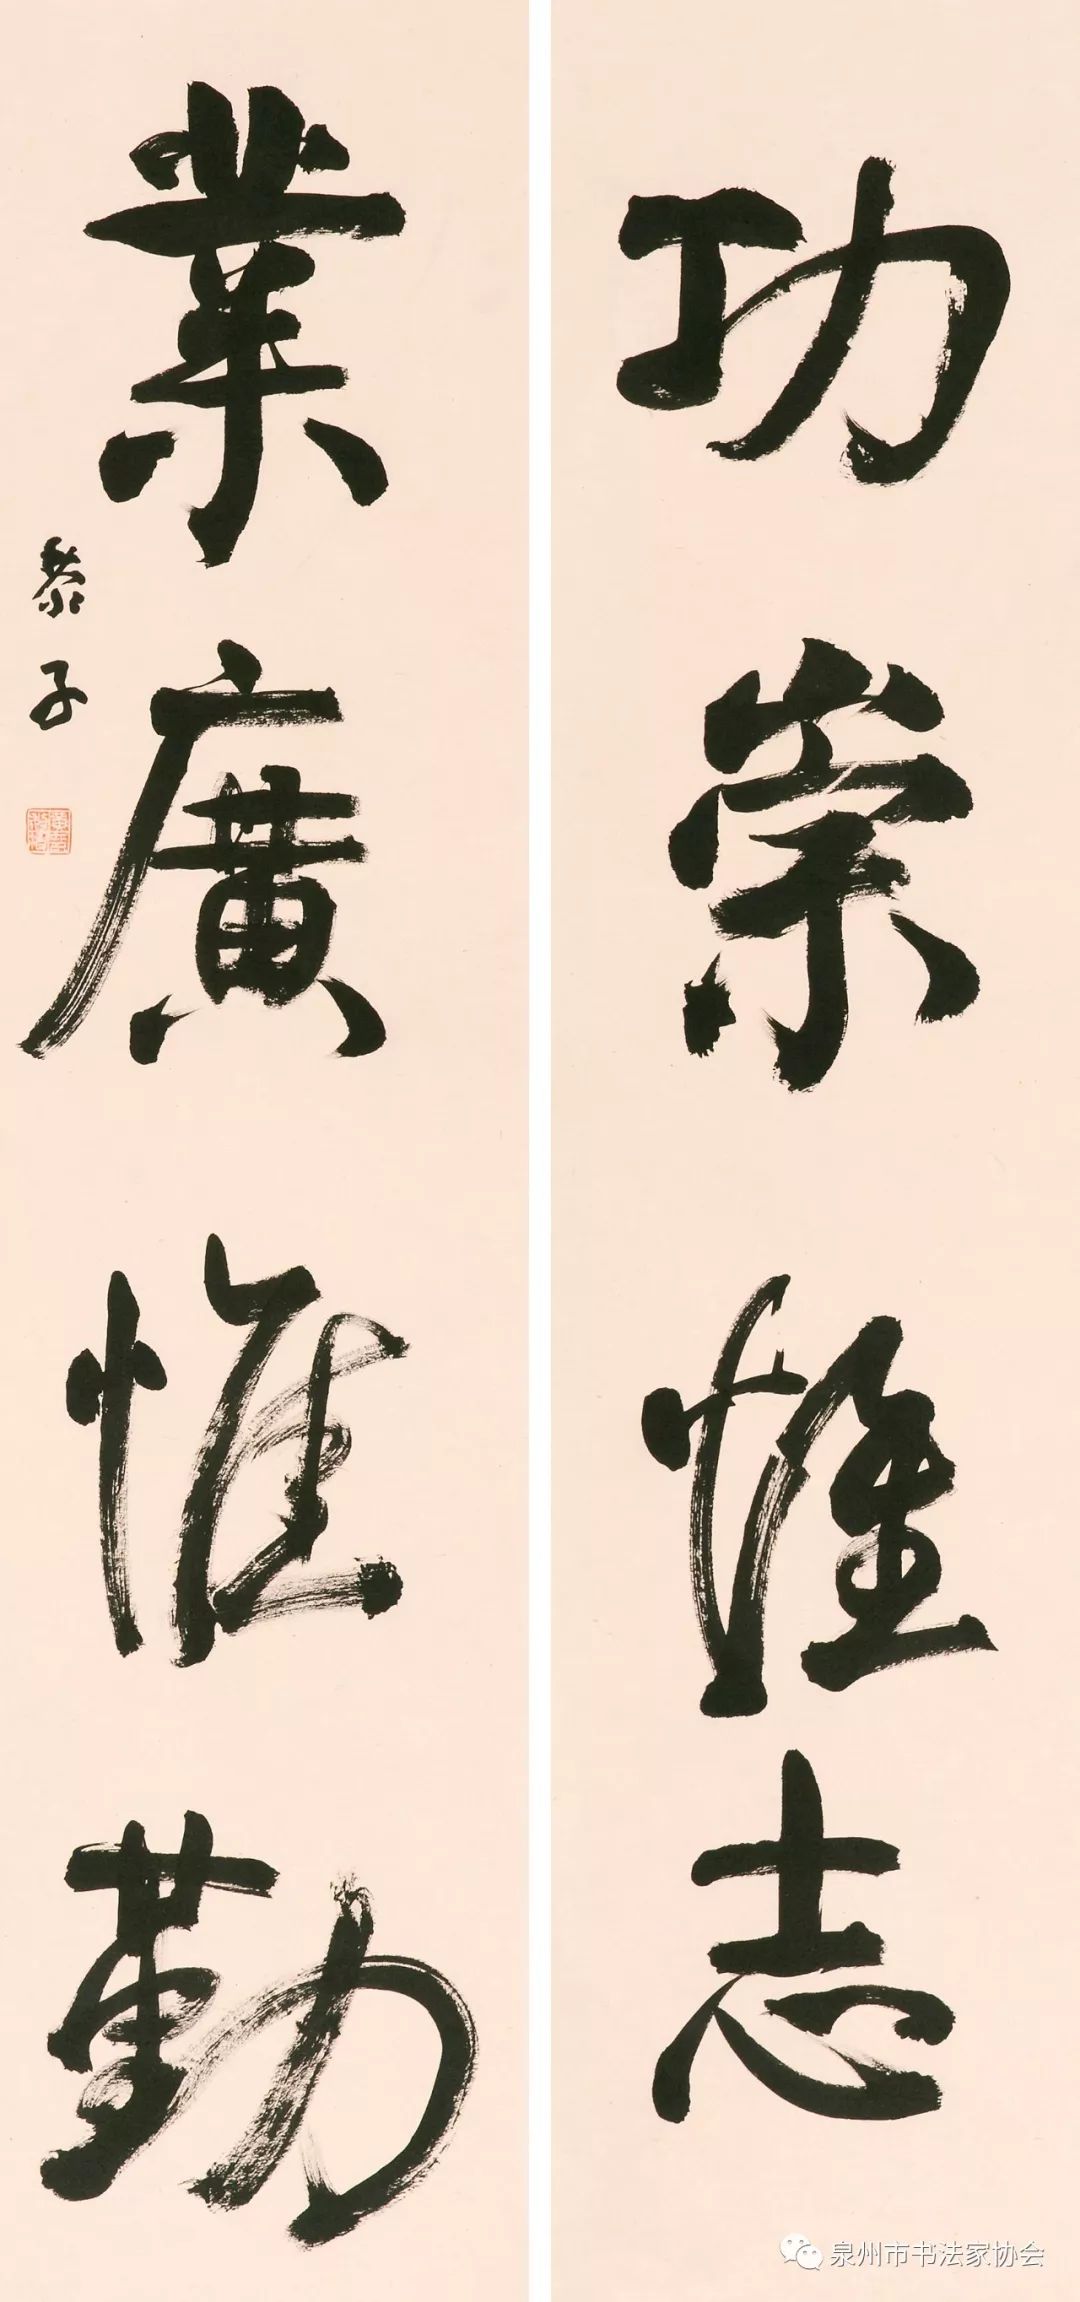 功崇惟志
業廣惟勤
泰子
泉州市书法家协会